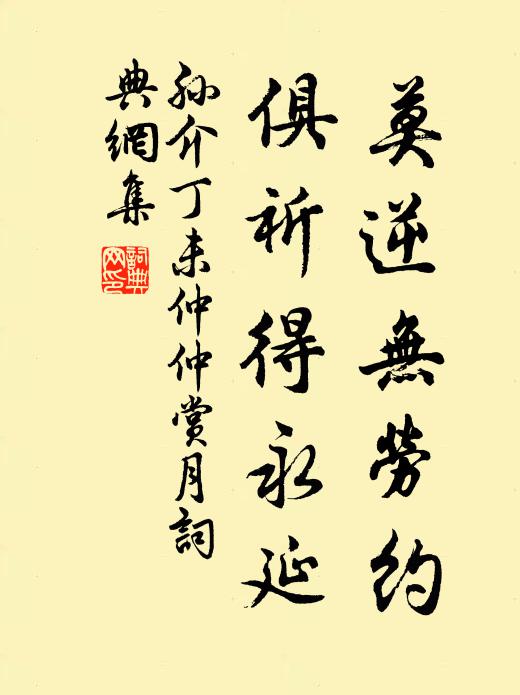 莫逆無勞約
俱祈得永延
孫介丁未仲仲賞月詞
典網集
詞典
网印